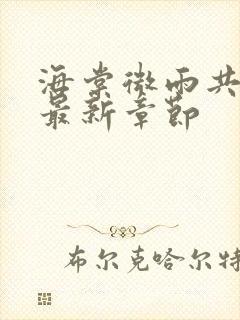 海棠微雨共
最新章节
布尔克哈尔特